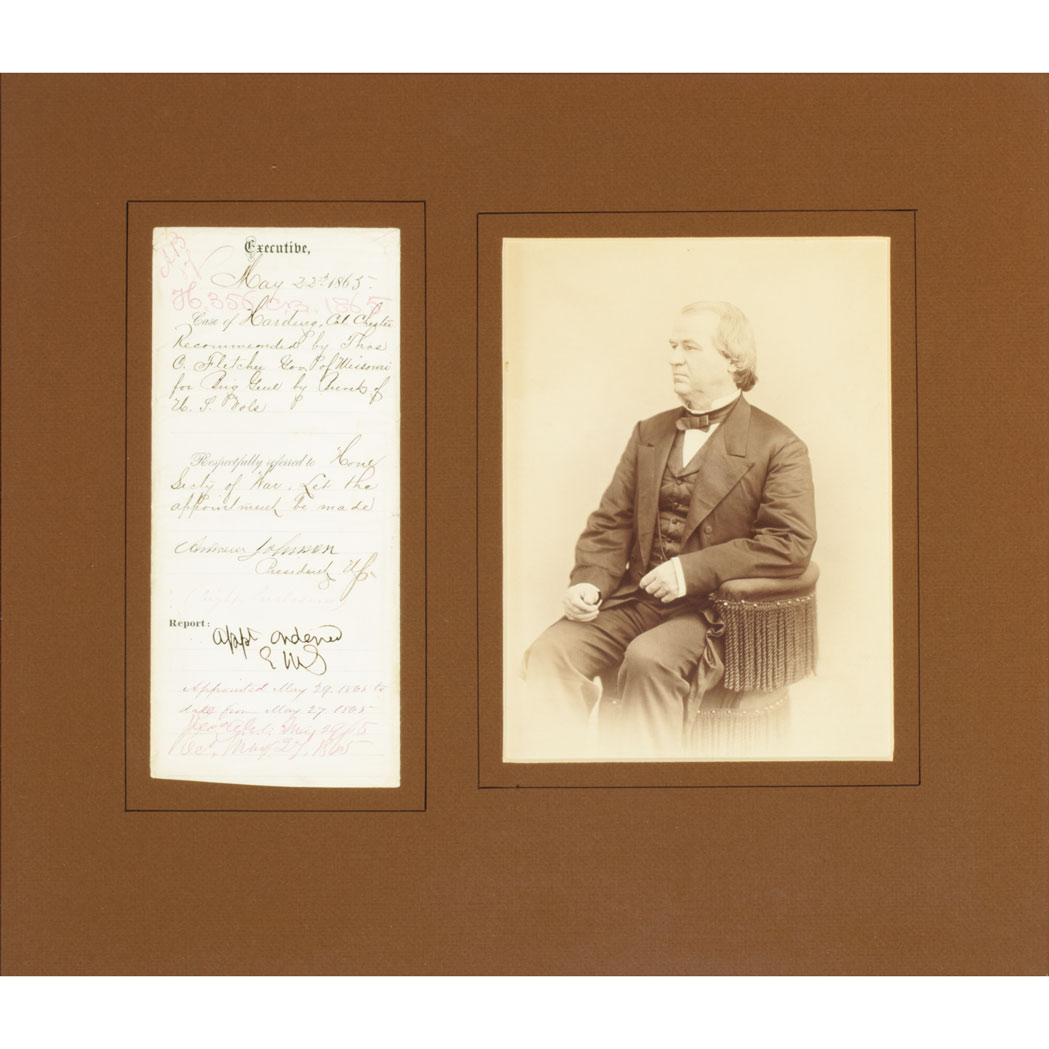 Executive,
May 22d 1865.
H. 356. C.B. 1865
Case of Harding, Col Chester
Recommended by Thos
C. Fletcher Gov of Missouri
for Brig Genl by Brevet of
U. S. Vols
Respectfully referred to Hon
Secty of War. Let the
appointment be made
Andrew Johnson
President U.S.
Report:
appt ordered
EMS
Appointed May 29. 1865 to
date from May 27. 1865
May 29/65
May 27, 1865